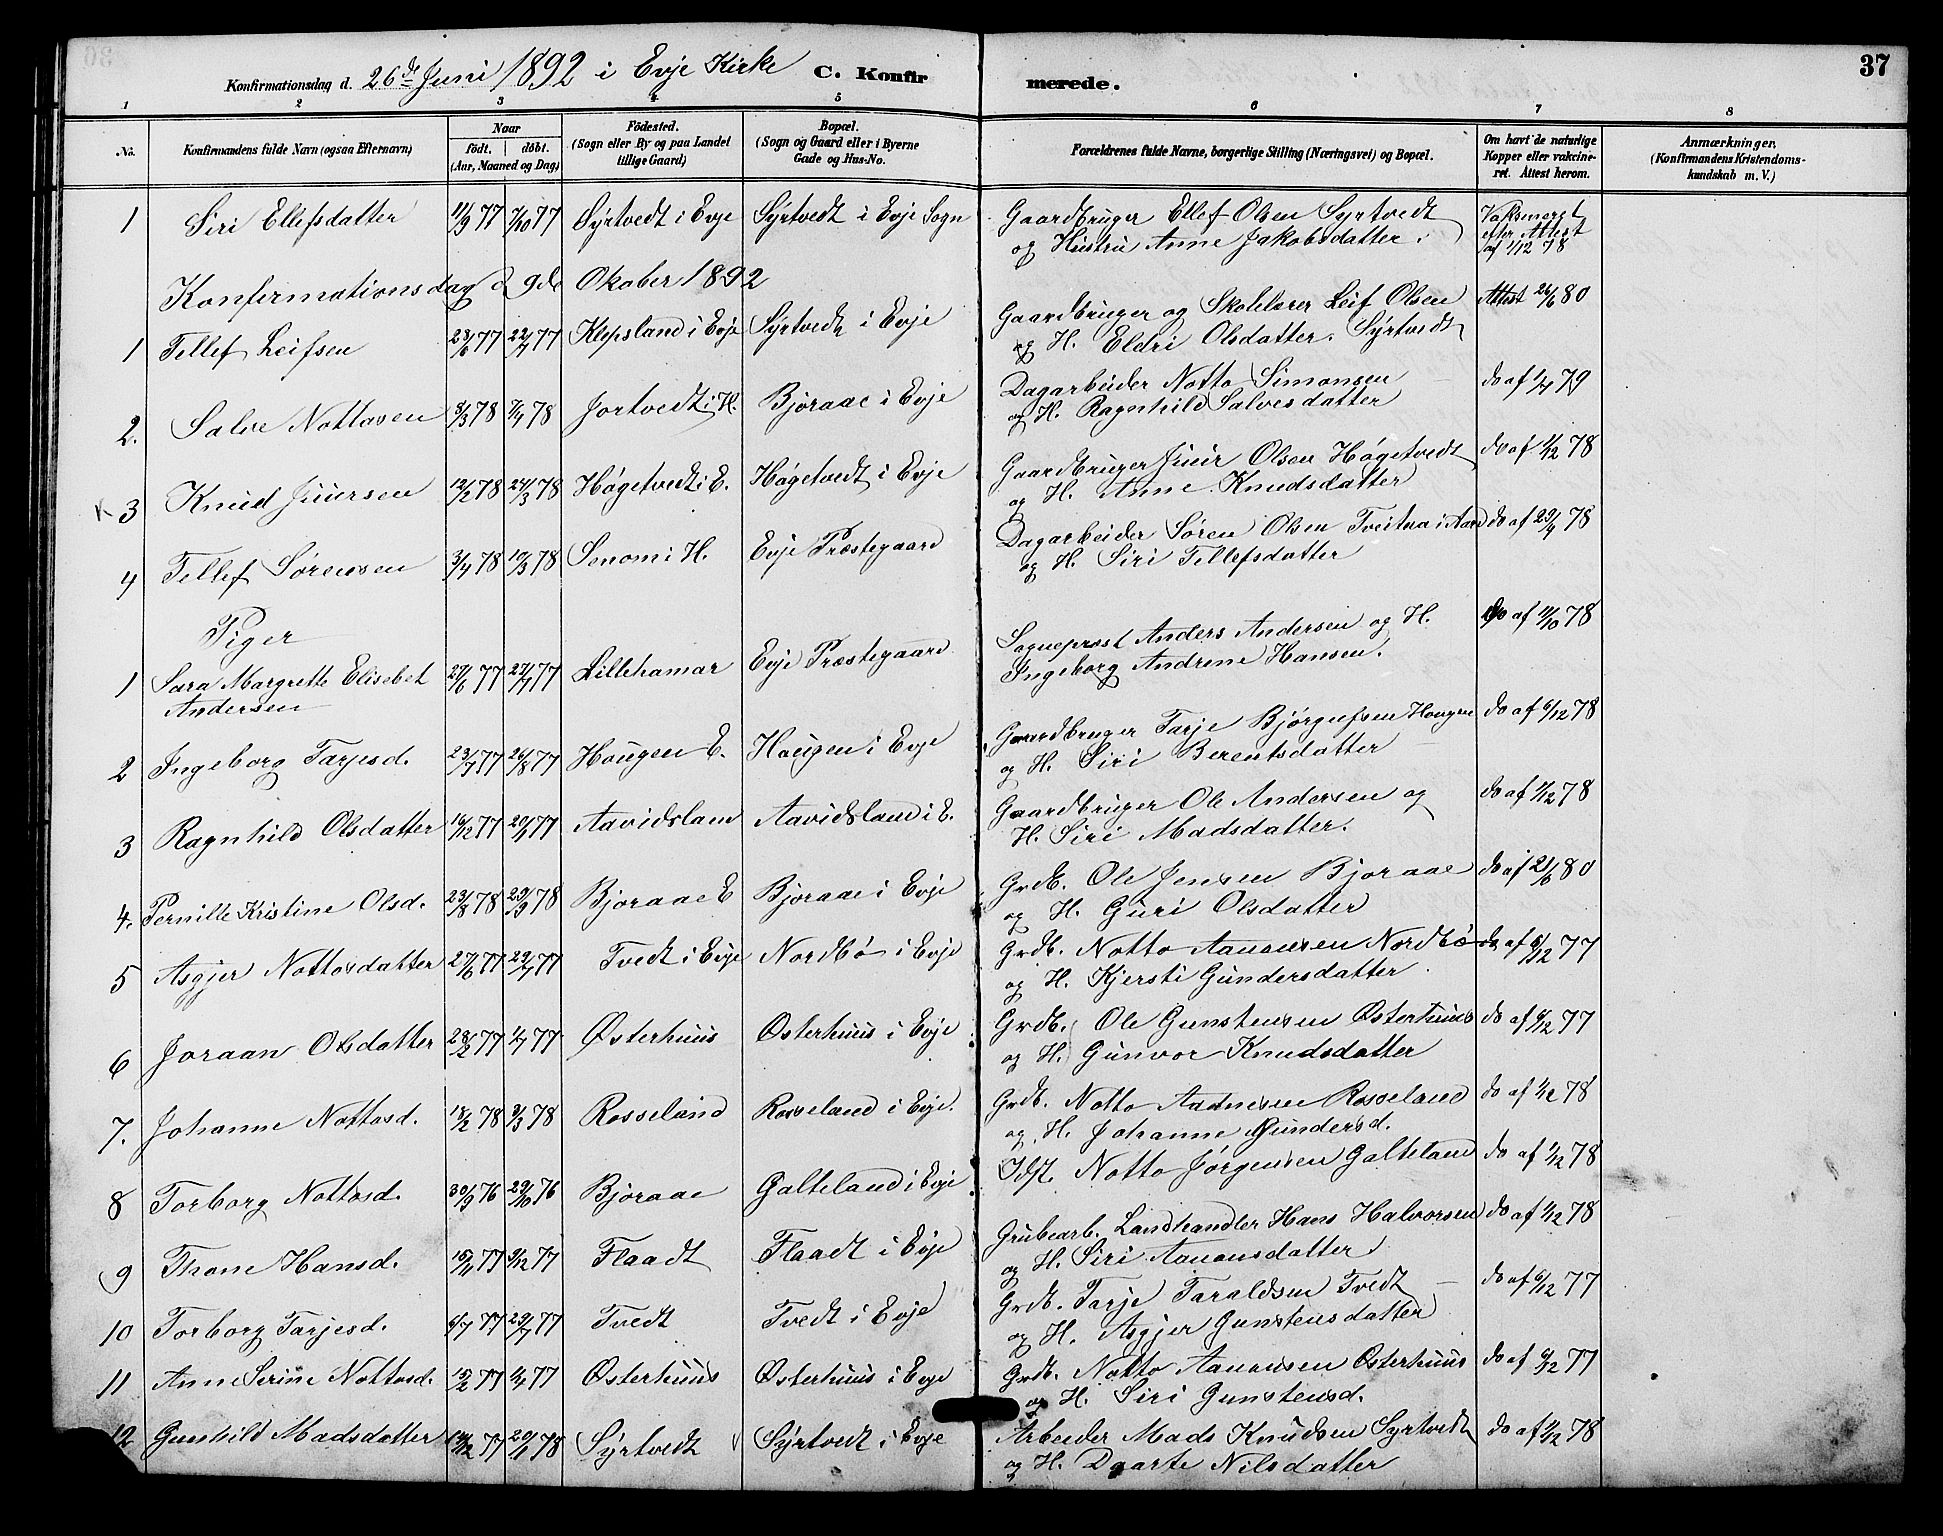 37
Konfirmationsdag d. 26de Juni 1892 i Evje Kirke C. Konfirmerede.
1 2 3 4 5 6 7 8
No. Konfirmandens fulde Navn (ogsaa Efternavn) Naar födt. döbt. (Aar, Maaned og Dag) Födested. (Sogn eller By og paa Landet tillige Gaard) Bopæl. (Sogn og Gaard eller i Byerne Gade og Hus-No. Forældrenes fulde Navne, borgerlige Stilling (Næringsvei) og Bopæl. Om havt de naturlige Kopper eller vakcineret. Attest herom. Anmærkninger, (Konfirmandens Kristendomskundskab m. V.)
1 Siri Ellefsdatter 11/9 77 7/10 77 Syrtvedt i Evje Syrtvedt i Evje Sogn Gaardbruger Ellef Olsen Syrtvedt efter Attest af 1/12 78
og Hustru Anne Jakobsdatter.
Konfirmationsdag d 9de Okober 1892
1 Tellef Leifsen 23/6 77 22/7 77 Klepsland i Evje Syrtvedt i Evje Gaardbruger og Skolelærer Leif Olsen Attest 26/6 80
og H. Eldri Olsdatter. Syrtvedt
2. Salve Nottosen 3/3 78 7/4 78 Jortvedt i H. Bjoraae i Evje Dagarbeider Notto Simonsen do af 1/4 79
og H. Ragnhild Salvesdatter
3 Knud Juursen 12/2 78 24/3 78 Högetvedt i E. Högetvedt i Evje Gaardbruger Juur Olsen Högetvedt do af 1/12 78
og H. Anne Knudsdatter
4 Tellef Sörensen 3/4 78 19/5 78 Senom i H. Evje Præstegaard Dagarbeider Sören Olsen Tveitna i Aard do af 29/4 78
og H. Siri Tellefsdatter
Piger
1 Sara Margrette Elisebet 27/6 77 27/7 77 Lillehamar Evje Præstegaard Sogneprest Anders Andersen og H. do af 11/10 78
Andersen Ingeborg Andrine Hansen.
2 Ingeborg Tarjesd. 23/7 77 26/8 77 Hougen E. Hougen i Evje Gaardbruger Tarje Björgufsen Hougen do af 6/12 78
og H. Siri Berentsdatter
3 Ragnhild Olsdatter 16/12 77 20/1 77 Aavidsland Aavidsland i E. Gaardbruger Ole Andersen og do af 7/12 78
H. Siri Madsdatter.
4. Pernille Kristine Olsd. 23/8 78 29/9 78 Bjoraae E Bjoraae i Evje Grdb. Ole Jensen Bjoraae do af 21/6 80
og H. Guri Olsdatter
5 Asgjer Nottosdatter 27/6 77 29/7 77 Tvedt i Evje Nordbö i Evje Grdb. Notto Aanonsen Nordbö do af 6/12 77
og H. Kjersti Gundersdatter.
6 Joraan Olsdatter 28/2 77 1/7 77 Østerhuus Østerhuus i Evje Grdb. Ole Gunstensen Østerhuus do af 6/12 77
og H. Gunvor Knudsdatter
7. Johanne Nottosd. 18/2 78 3/3 78 Rosseland Rosseland i Evje. Grdb. Notto Aadnesen Rosseland do af 1/12 78
og H. Johanne Gundersd.
8 Torborg Nottosd. 30/9 76 29/10 76 Bjoraae Galteland i Evje Notto Jörgensen Galteland do af 1/12 78
9 Thone Hansd. 16/11 77 9/12 77 Flaadt Flaadt i Evje Grubearb. Landhandler Hans Halvorsen do af 1/12 78
og H. Siri Aanonsdatter
10 Torborg Tarjesd. 6/7 77 29/7 77 Tvedt Tvedt i Evje Grdb. Tarje Taraldsen Tvedt do af 6/12 77
og H. Asgjer Gunstensdatter
11 Anne Serine Nottosd. 15/2 77 1/4 77 Østerhuus Østerhuus i Evje Grdb. Notto Aanonsen Østerhuus do af 6/12 77
og H. Siri Gunstensd.
12 Gunhild Madsdatter 14/12 77 20/1 78 Syrtvedt Syrtvedt i Evje Arbeider Mads Knudsen Syrtvedt do af 1/12 78
og H. Daarte Nilsdatter